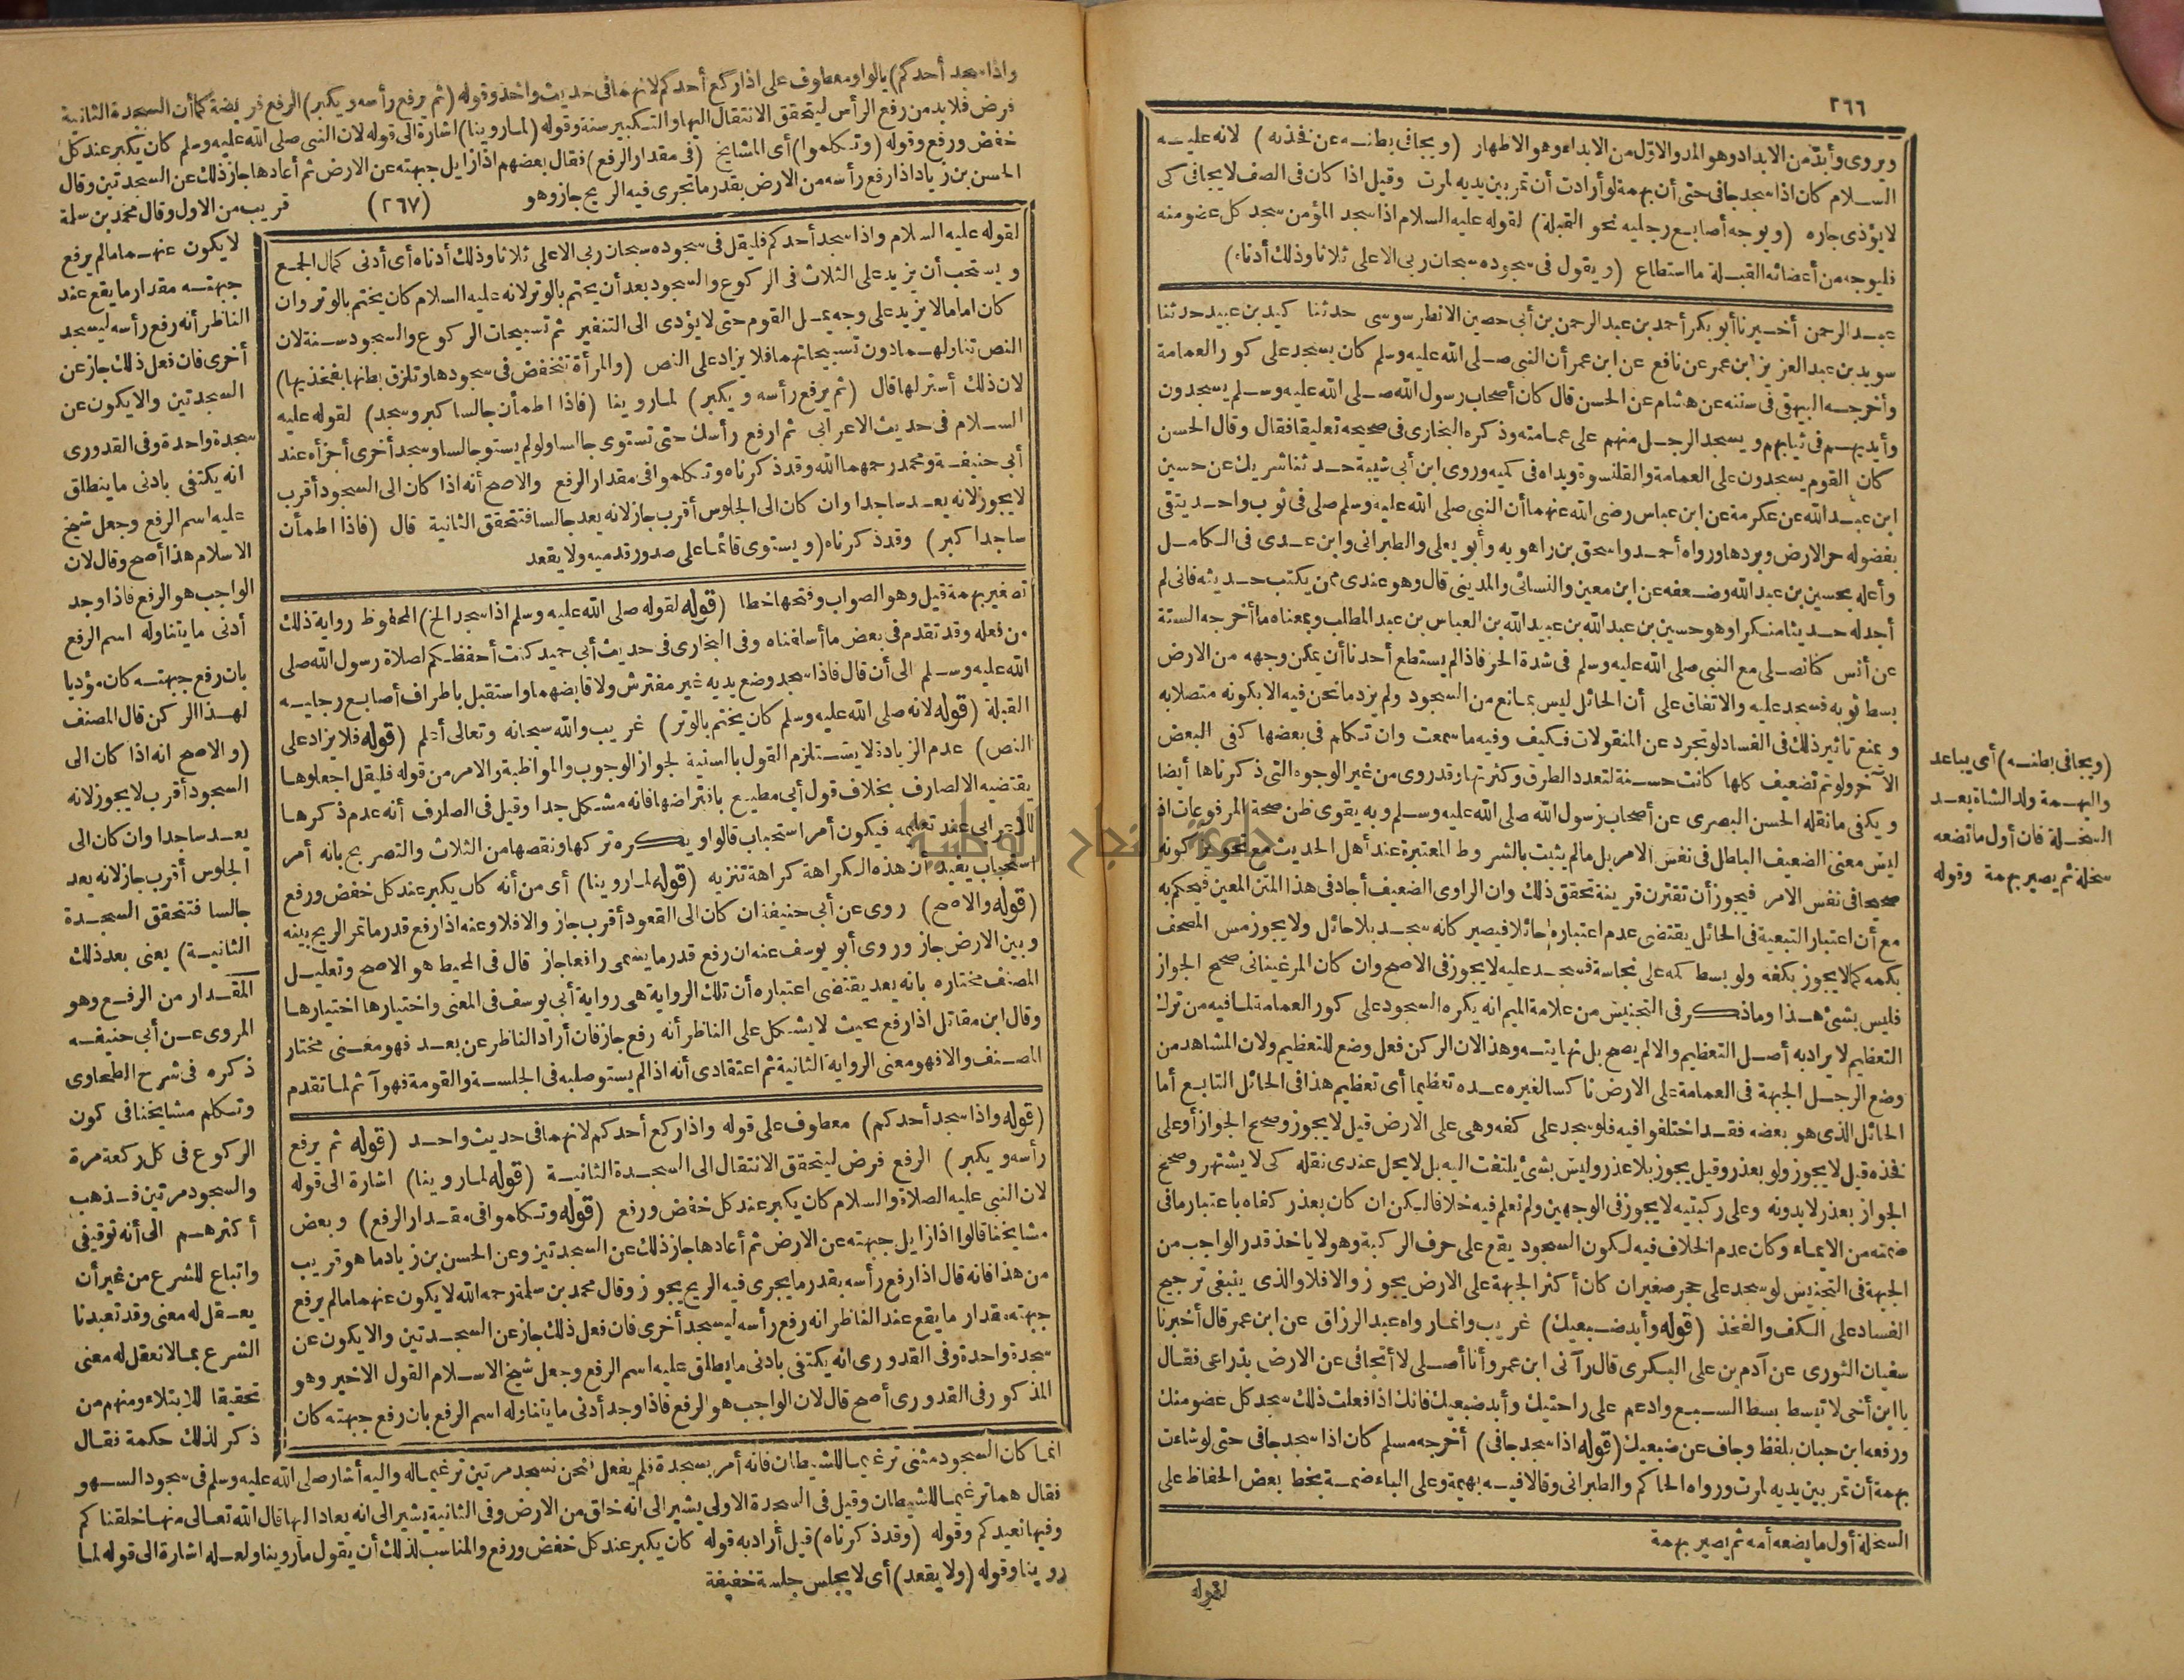 ٢٦٦
ويروى وأبدّ من الابداد وهو المد والاول من الابداء وهو الاظهار (ويجافى بطنه عن فخذيه) لانه عليه
السلام كان اذا سجد جافى حتى أن بهمة لو أرادت أن تمر بين يديه لمرت وقيل اذا كان فى الصف لا يجافى كى
لا يؤذى جاره (ويوجه أصابع رجليه نحو القبلة) لقوله عليه السلام اذا سجد المؤمن سجد كل عضو منه
فليوجه من أعضائه القبلة ما استطاع (ويقول فى سجوده سبحان ربى الاعلى ثلاثا وذلك أدناه)
عبد الرحمن أخبرنا أبو بكر أحمد بن عبد الرحمن بن أبى حصين الانطرسوسى حدثنا كبد بن عبيد حدثنا
سويد بن عبد العزيز ابن عمر عن نافع عن ابن عمر أن النبى صلى الله عليه وسلم كان يسجد على كور العمامة
وأخرجه البيهقى فى سننه عن هشام عن الحسن قال كان أصحاب رسول الله صلى الله عليه وسلم يسجدون
وأيديهم فى ثيابهم ويسجد الرجل منهم على عمامته وذكره البخارى فى صحيحه تعليقا فقال وقال الحسن
كان القوم يسجدون على العمامة والقلنسوة ويداه فى كميه وروى ابن أبى شيبة حدثنا شريك عن حسين
ابن عبد الله عن عكرمة عن ابن عباس رضى الله عنهما أن النبى صلى الله عليه وسلم صلى فى ثوب واحد يتقى
بفضوله حر الارض وبردها ورواه أحمد واسحق بن راهويه وأبو يعلى والطبرانى وابن عدى فى الكامل
وأعله بحسين بن عبد الله وضعفه عن ابن معين والنسائى والمدينى قال وهو عندى ممن يكتب حديثه فانى لم
أجد له حديثا منكرا وهو حسين بن عبد الله بن عبيد الله بن العباس بن عبد المطلب وبمعناه ما أخرجه الستة
عن أنس كنا نصلى مع النبى صلى الله عليه وسلم فى شدة الحر فاذا لم يستطع أحدنا أن يمكن وجهه من الارض
بسط ثوبه فسجد عليه والاتفاق على أن الحائل ليس بمانع من السجود ولم يزد ما نحن فيه الا بكونه متصلا به
ويمنع تاثير ذلك فى الفساد لو تجرد عن المنقولات فكيف وفيه ما سمعت وان تكلم فى بعضها كفى البعض
الآخر ولو تم تضعيف كلها كانت حسنة لتعدد الطرق وكثرتها وقد روى من غير الوجوه التى ذكرناها أيضا
ويكفى ما نقله الحسن البصرى عن أصحاب رسول الله صلى الله عليه وسلم وبه يقوى ظن صحة المرفوعات اذ
ليس معنى الضعيف الباطل فى نفس الامر بل ما لم يثبت بالشروط المعتبرة عند أهل الحديث مع تجويز كونه
صحيحا فى نفس الامر فيجوز أن تقترن قرينة تحقق ذلك وان الراوى الضعيف أجاد فى هذا المتن المعين فيحكم به
مع أن اعتبار التبعية فى الحائل يقتضى عدم اعتباره حائلا فيصير كانه سجد بلا حائل ولا يجوز مس المصحف
بكمه كما لا يجوز بكفه ولو بسط كمه على نجاسة فسجد عليه لا يجوز فى الاصح وان كان المرغينانى صحح الجواز
فليس بشئ هذا وما ذكر فى التجنيس من علامة الميم انه يكره السجود على كور العمامة لما فيه من ترك
التعظيم لا يراد به أصل التعظيم والا لم يصح بل نهايته وهذا لان الركن فعل وضع للتعظيم ولان المشاهد من
وضع الرجل الجبهة فى العمامة على الارض ناكسا لغيره عده تعظيما أى تعظيم هذا فى الحائل التابع أما
الحائل الذى هو بعضه فقد اختلفوا فيه فلو سجد على كفه وهى على الارض قيل لا يجوز وصحح الجواز أو على
فخذه قيل لا يجوز ولو بعذر وقيل يجوز بلا عذر وليس بشئ يلتفت اليه بل لا يحل عندى نقله كى لا يشتهر وصحح
الجواز بعذر لا بدونه وعلى ركبتيه لا يجوز فى الوجهين ولم نعلم فيه خلافا لكن ان كان بعذر كفاه باعتبار ما فى
ضمنه من الايماء وكان عدم الخلاف فيه لكون السجود يقع على حرف الركبة وهو لا ياخذ قدر الواجب من
الجبهة فى التجنيس لو سجد على حجر صغير ان كان أكثر الجبهة على الارض يجوز والا فلا والذى ينبغى ترجيح
الفساد على الكف والفخذ (قوله وأبد ضبعيك) غريب وانما رواه عبد الرزاق عن ابن عمر قال أخبرنا
سفيان الثورى عن آدم بن على البكرى قال رآنى ابن عمر وأنا أصلى لا أتجافى عن الارض بذراعى فقال
يا ابن أخى لا تبسط بسط السبع وادعم على راحتيك وأبد ضبعيك فانك اذا فعلت ذلك سجد كل عضو منك
ورفعه ابن حبان بلفظ وجاف عن ضبعيك (قوله اذا سجد جافى) أخرجه مسلم كان اذا سجد جافى حتى لو شاءت
بهمة أن تمر بين يديه لمرت ورواه الحاكم والطبرانى وقالا فيه بهيمة وعلى الباء ضمة بخط بعض الحفاظ على
السخلة أول ما يضعه أمه ثم يصير بهمة
لقوله
(ويجافى بطنه) أى يباعد
والبهمة ولد الشاة بعد
السخلة فان أول ما تضعه
سخلة ثم يصير بهمة وقوله
واذا سجد أحدكم) بالواو معطوف على اذا ركع أحدكم لانهما فى حديث واحد وقوله (ثم يرفع رأسه ويكبر) الرفع فريضة كما أن السجدة الثانية
فرض فلا بد من رفع الرأس ليتحقق الانتقال اليها والتكبير سنة وقوله (لما روينا) اشارة الى قوله لان النبى صلى الله عليه وسلم كان يكبر عند كل
خفض ورفع وقوله (وتكلموا) أى المشايخ (فى مقدار الرفع) فقال بعضهم اذا زايل جبهته عن الارض ثم أعادها جاز ذلك عن السجدتين وقال
الحسن بن زياد اذا رفع رأسه من الارض بقدر ما تجرى فيه الريح جاز وهو (٢٦٧) قريب من الاول وقال محمد بن سلمة
لا يكون عنهما ما لم يرفع
جبهته مقدار ما يقع عند
الناظر أنه رفع رأسه ليسجد
أخرى فان فعل ذلك جاز عن
السجدتين والا يكون عن
سجدة واحدة وفى القدورى
انه يكتفى بادنى ما ينطلق
عليه اسم الرفع وجعل شيخ
الاسلام هذا أصح وقال لان
الواجب هو الرفع فاذا وجد
أدنى ما يتناوله اسم الرفع
بان رفع جبهته كان مؤديا
لهذا الركن قال المصنف
(والاصح انه اذا كان الى
السجود أقرب لا يجوز لانه
يعد ساجدا وان كان الى
الجلوس أقرب جاز لانه يعد
جالسا فتتحقق السجدة
الثانية) يعنى بعد ذلك
المقدار من الرفع وهو
المروى عن أبى حنيفة
ذكره فى شرح الطحاوى
وتكلم مشايخنا فى كون
الركوع فى كل ركعة مرة
والسجود مرتين فذهب
أكثرهم الى أنه توقيفى
واتباع للشرع من غير أن
يعقل له معنى وقد تعبدنا
الشرع بما لا نعقل له معنى
تحقيقا للابتلاء ومنهم من
ذكر لذلك حكمة فقال
لقوله عليه السلام واذا سجد أحدكم فليقل فى سجوده سبحان ربى الاعلى ثلاثا وذلك أدناه أى أدنى كمال الجمع
ويستحب أن يزيد على الثلاث فى الركوع والسجود بعد أن يختم بالوتر لانه عليه السلام كان يختم بالوتر وان
كان اماما لا يزيد على وجه يمل القوم حتى لا يؤدى الى التنفير ثم تسبيحات الركوع والسجود سنة لان
النص تناولهما دون تسبيحاتهما فلا يزاد على النص (والمرأة تنخفض فى سجودها وتلزق بطنها بفخذيها)
لان ذلك أستر لها قال (ثم يرفع رأسه ويكبر) لما روينا (فاذا اطمأن جالسا كبر وسجد) لقوله عليه
السلام فى حديث الاعرابى ثم ارفع رأسك حتى تستوى جالسا ولو لم يستو جالسا وسجد أخرى أجزأه عند
أبى حنيفة ومحمد رحمهما الله وقد ذكرناه وتكلموا فى مقدار الرفع والاصح أنه اذا كان الى السجود أقرب
لا يجوز لانه يعد ساجدا وان كان الى الجلوس أقرب جاز لانه يعد جالسا فتتحقق الثانية قال (فاذا اطمأن
ساجدا كبر) وقد ذكرناه (ويستوى قائما على صدور قدميه ولا يقعد
تصغير بهمة قيل وهو الصواب وفتحها خطا (قوله لقوله صلى الله عليه وسلم اذا سجد الخ) المحفوظ رواية ذلك
من فعله وقد تقدم فى بعض ما أسلفناه وفى البخارى فى حديث أبى حميد كنت أحفظكم لصلاة رسول الله صلى
الله عليه وسلم الى أن قال فاذا سجد وضع يديه غير مفترش ولا قابضهما واستقبل باطراف أصابع رجليه
القبلة (قوله لانه صلى الله عليه وسلم كان يختم بالوتر) غريب والله سبحانه وتعالى أعلم (قوله فلا يزاد على
النص) عدم الزيادة لا يستلزم القول بالسنية لجواز الوجوب والمواظبة والامر من قوله فليقل اجعلوها
يقتضيه الا لصارف بخلاف قول أبى مطيع بافتراضها فانه مشكل جدا وقيل فى الصارف أنه عدم ذكرها
للاعرابى عند تعليمه فيكون أمر استحباب قالوا ويكره تركها ونقصها من الثلاث والتصريح بانه أمر
استحباب يفيد أن هذه الكراهة كراهة تنزيه (قوله لما روينا) أى من أنه كان يكبر عند كل خفض ورفع
(قوله والاصح) روى عن أبى حنيفة ان كان الى القعود أقرب جاز والا فلا وعنه اذا رفع قدر ما تمر الريح بينه
وبين الارض جاز وروى أبو يوسف عنه ان رفع قدر ما يسمى رافعا جاز قال فى المحيط هو الاصح وتعليل
المصنف مختاره بانه يعد يقتضى اعتباره أن تلك الرواية هى رواية أبى يوسف فى المعنى واختيارها اختيارها
وقال ابن مقاتل اذا رفع بحيث لا يشكل على الناظر أنه رفع جاز فان أراد الناظر عن بعد فهو معنى مختار
المصنف والا فهو معنى الرواية الثانية ثم اعتقادى أنه اذا لم يستو صلبه فى الجلسة والقومة فهو آثم لما تقدم
(قوله واذا سجد أحدكم) معطوف على قوله واذا ركع أحدكم لانهما فى حديث واحد (قوله ثم يرفع
رأسه ويكبر) الرفع فرض ليتحقق الانتقال الى السجدة الثانية (قوله لما روينا) اشارة الى قوله
لان النبى عليه الصلاة والسلام كان يكبر عند كل خفض ورفع (قوله وتكلموا فى مقدار الرفع) وبعض
مشايخنا قالوا اذا زايل جبهته عن الارض ثم أعادها جاز ذلك عن السجدتين وعن الحسن بن زياد ما هو قريب
من هذا فانه قال اذا رفع رأسه بقدر ما يجرى فيه الريح يجوز وقال محمد بن سلمة رحمه الله لا يكون عنهما ما لم يرفع
جبهته مقدار ما يقع عند الناظر انه رفع رأسه ليسجد أخرى فان فعل ذلك جاز عن السجدتين والا يكون عن
سجدة واحدة وفى القدورى انه يكتفى بادنى ما يطلق عليه اسم الرفع وجعل شيخ الاسلام القول الاخير وهو
المذكور فى القدورى أصح قال لان الواجب هو الرفع فاذا وجد أدنى ما يتناوله اسم الرفع بان رفع جبهته كان
انما كان السجود مثنى ترغيما للشيطان فانه أمر بسجدة فلم يفعل فنحن نسجد مرتين ترغيما له واليه أشار صلى الله عليه وسلم فى سجود السهو
فقال هما ترغيما للشيطان وقيل فى السجدة الاولى يشير الى انه خلق من الارض وفى الثانية يشير الى انه يعاد اليها قال الله تعالى منها خلقناكم
وفيها نعيدكم وقوله (وقد ذكرناه) قيل أراد به قوله كان يكبر عند كل خفض ورفع والمناسب لذلك أن يقول ما روينا ولعله اشارة الى قوله لما
روينا وقوله (ولا يقعد) أى لا يجلس جلسة خفيفة
جامعة النجاح الوطنية